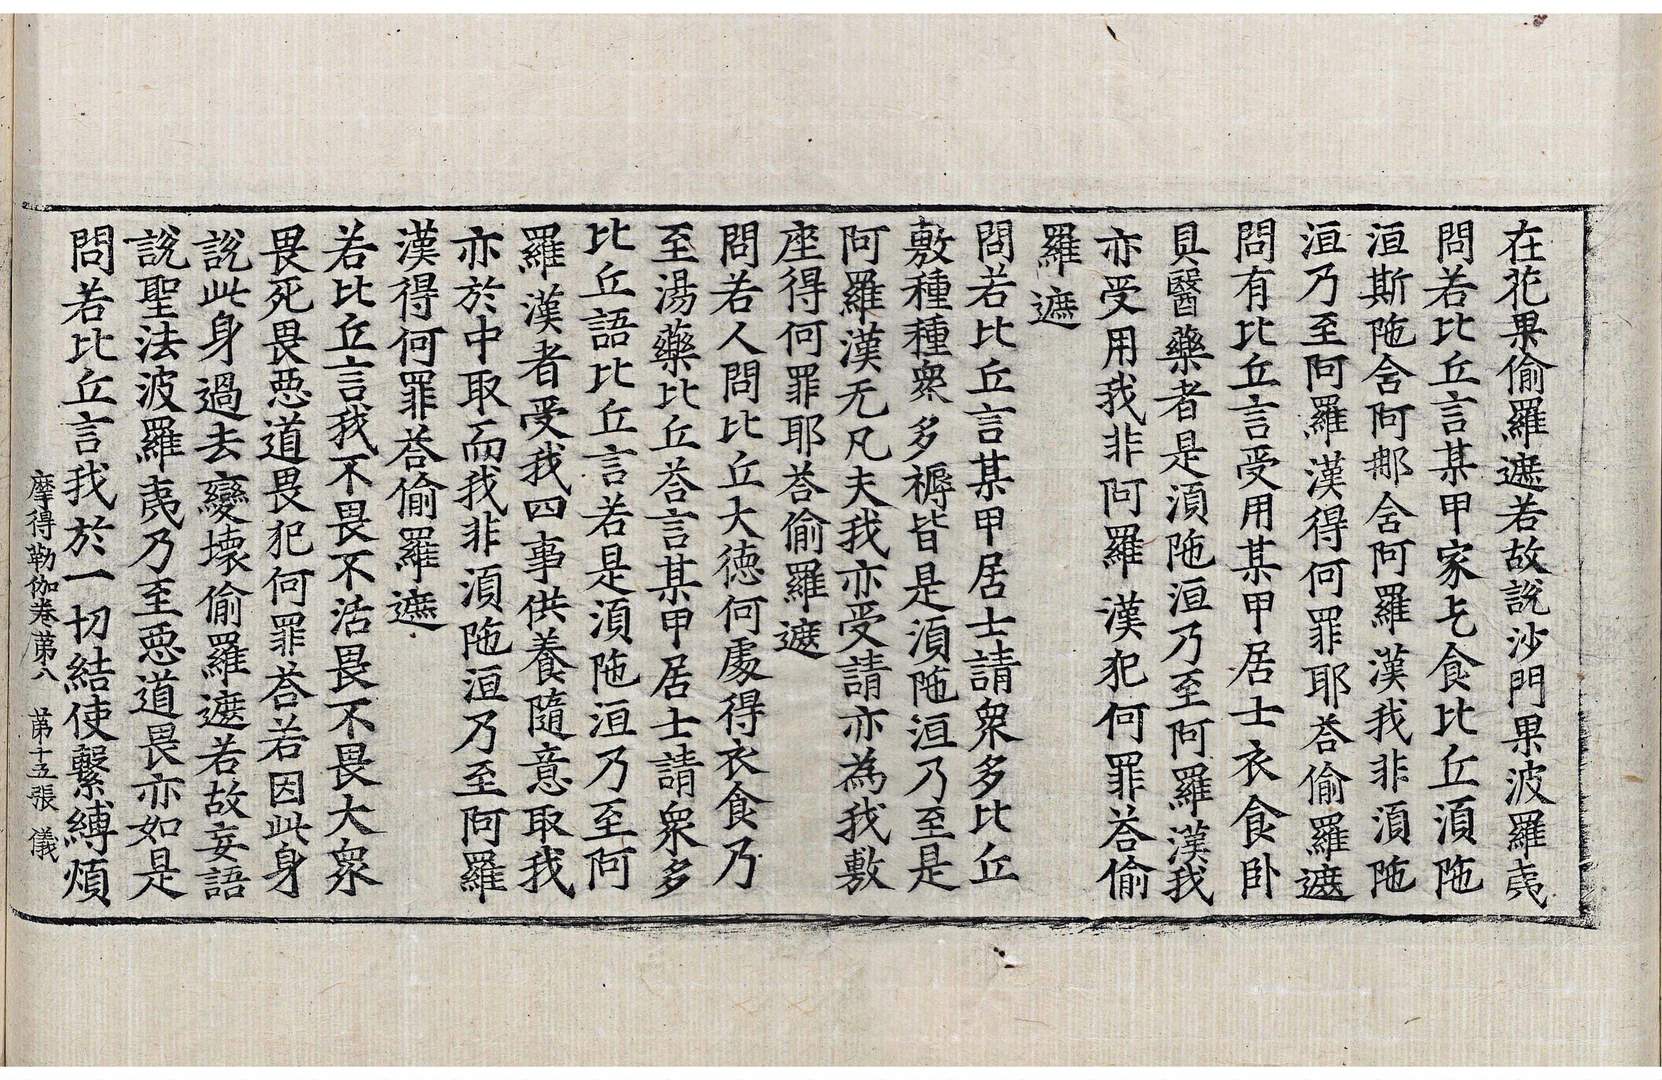 在花果偷羅遮若故說沙門果波羅夷
問若比丘言某甲家乞食比丘湏陁
洹斯陁含阿那含阿羅漢我非湏陁
洹乃至阿羅漢得何罪耶荅偷羅遮
問有比丘言受用某甲居士衣食卧
具醫藥者是湏陁洹乃至阿羅漢我
亦受用我非阿羅漢犯何罪荅偷
羅遮
問若比丘言某甲居士請衆多比丘
敷種種衆多褥皆是湏陁洹乃至是
阿羅漢无凡夫我亦受請亦為我敷
座得何罪耶荅偷羅遮
問若人問比丘大德何處得衣食乃
至湯藥比丘荅言某甲居士請衆多
比丘語比丘言若是湏陁洹乃至阿
羅漢者受我四事供養隨意取我
亦於中取而我非湏陁洹乃至阿羅
漢得何罪荅偷羅遮
若比丘言我不畏不活畏不畏大衆
畏死畏惡道畏犯何罪荅若因此身
說此身過去變壞偷羅遮若故妄語
說聖法波羅夷乃至惡道畏亦如是
問若比丘言我於一切結使繫縛煩
摩得勒伽卷苐八　苐十五張　儀